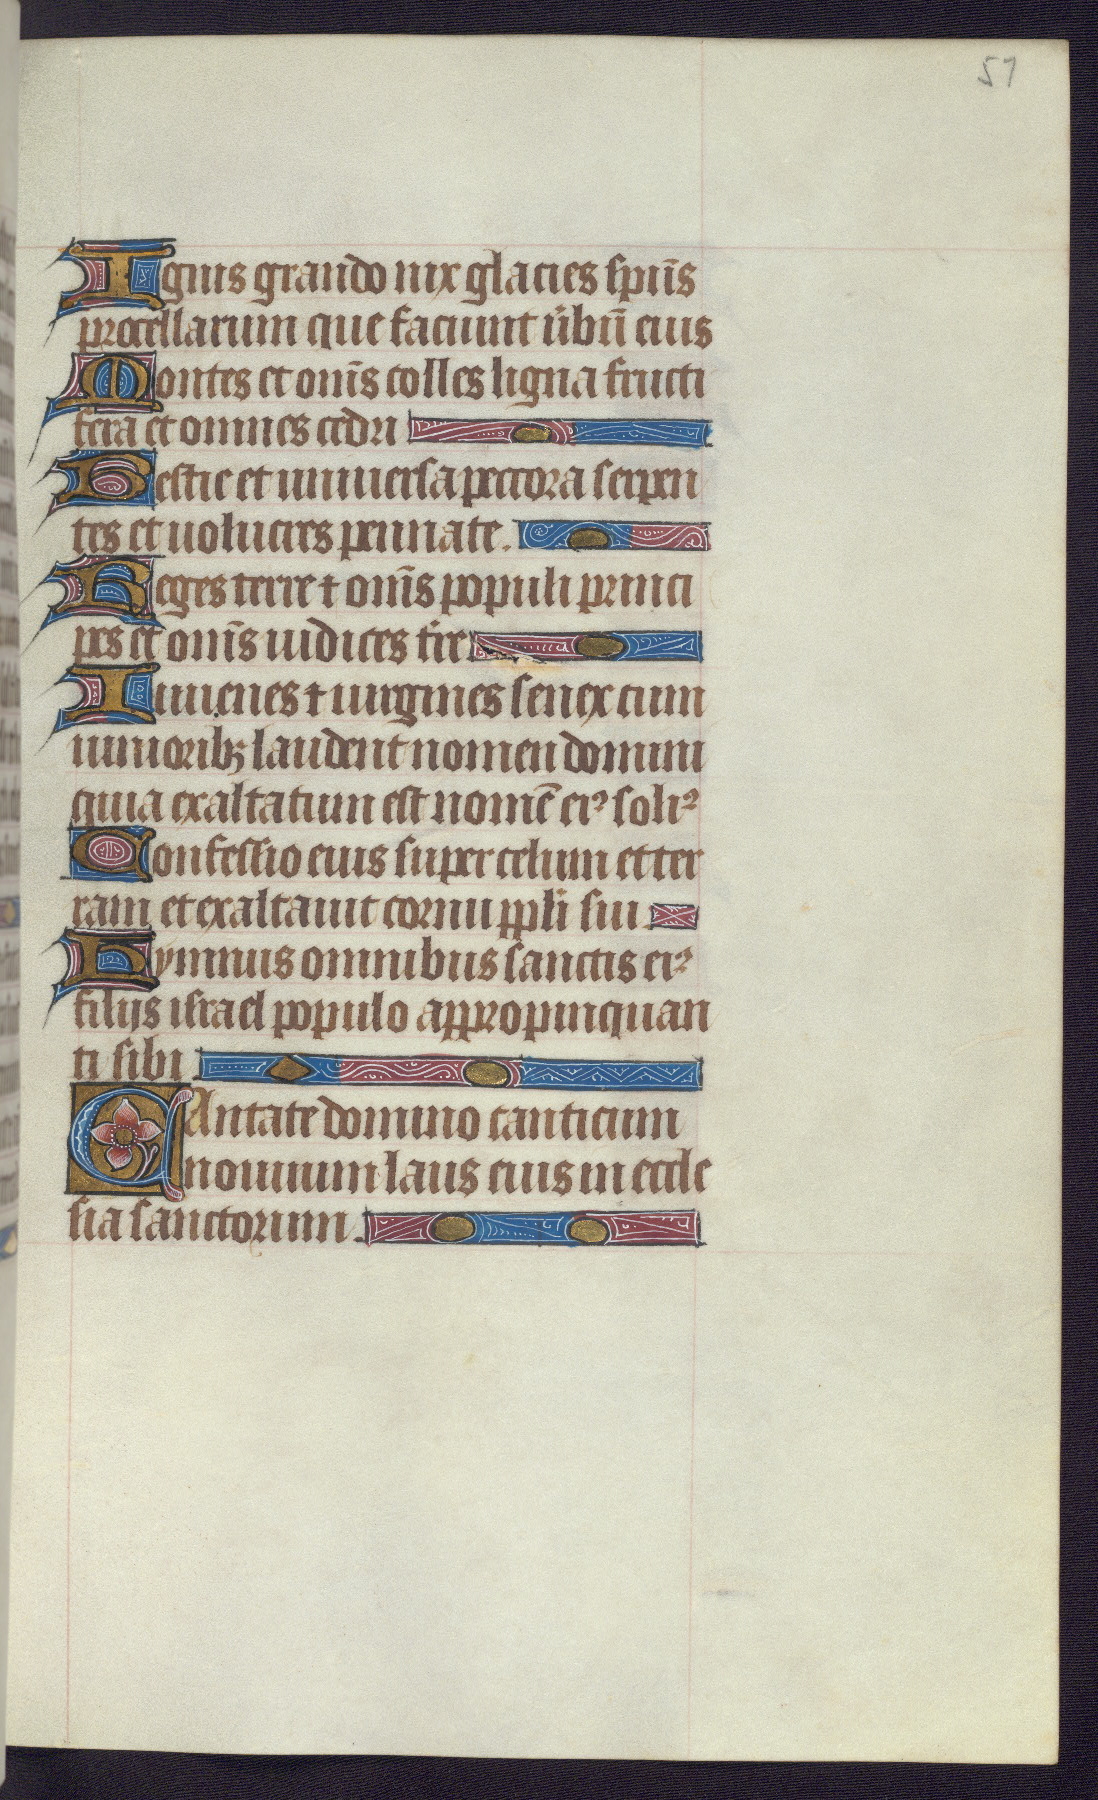 51
Ignis grando nix glacies spūs
procellarum que faciunt v̄bū eius
Montes et om̄s colles ligna fructi
fera et omnes cedri
Bestie et universa pectora serpen
tes et volucres pennate.
Reges terre ⁊ om̄s populi princi
pes et om̄s iudices tr̄e
Iuvenes ⁊ virgines senex cum
iunioribꝫ laudent nomen domini
quia exaltatum est nomē eiꝰ soliꝰ
Confessio eius super celum et ter
ram et exaltavit cornu ppl̄i sui.
Hymnus omnibus sanctis eiꝰ
filijs israel populo appropinquan
ti sibi
CAntate domino canticum
novuum laus eius in eccle
sia sanctorum.